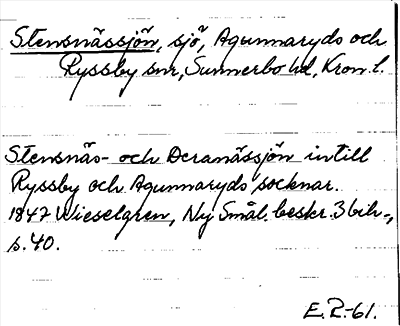 Stensnässjön, sjö, Agunnaryds och
Ryssby snr, Sunnerbo hd, Kron. l.
Stensnäs- och Deranässjön intill
Ryssby och Agunnaryds socknar.
1847 Wieselgren, Ny Smål. beskr. 3 bih.,
s. 40.
E.P.-61.